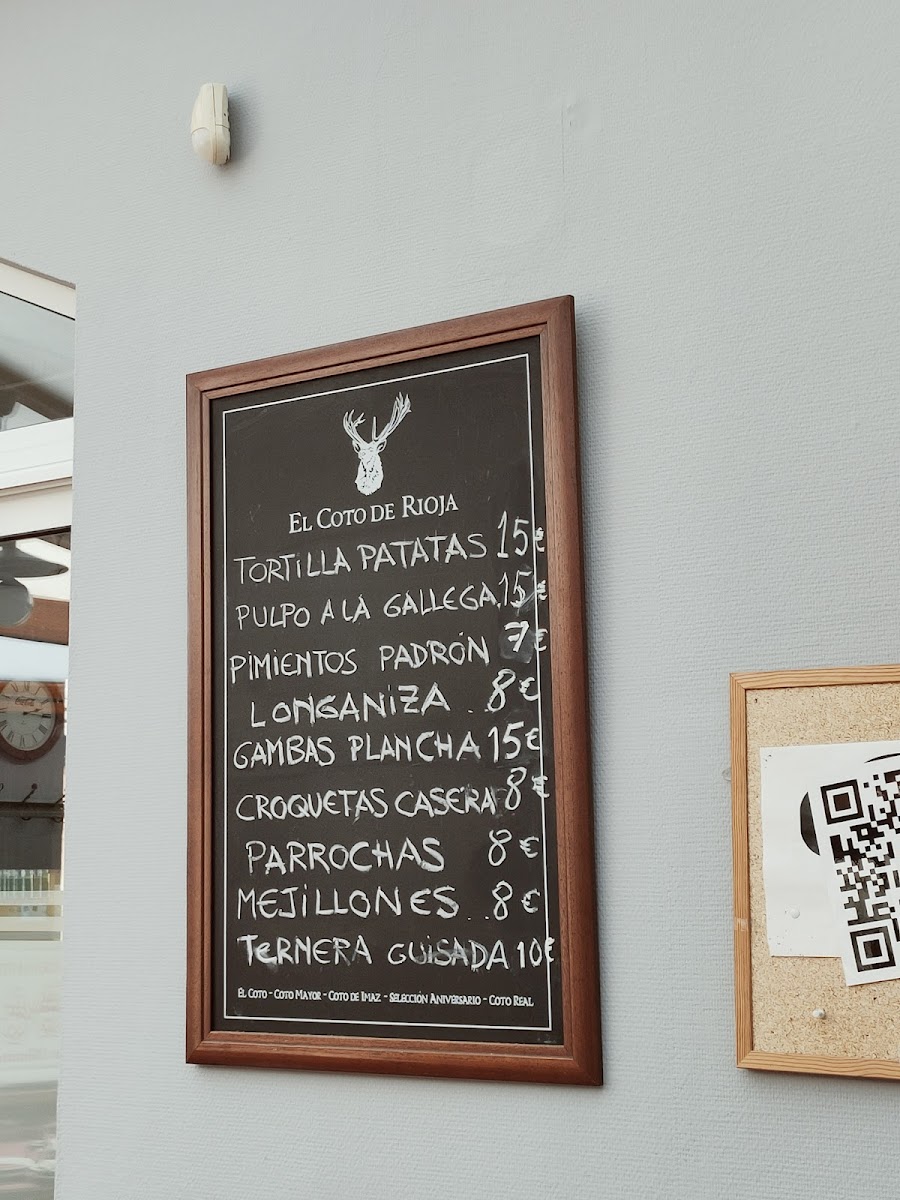 EL COTO DE RIOJA
TORTILLA PATATAS 15€
PULPO A LA GALLEGA 15€
PIMIENTOS PADRÓN 7€
LONGANIZA .. 8€
GAMBAS PLANCHA 15€
CROQUETAS CASERA 8€
PARROCHAS 8€
MEJILLONES .. 8€
TERNERA GUISADA 10€
EL COTO - COTO MAYOR - COTO DE IMAZ - SELECCIÓN ANIVERSARIO - COTO REAL